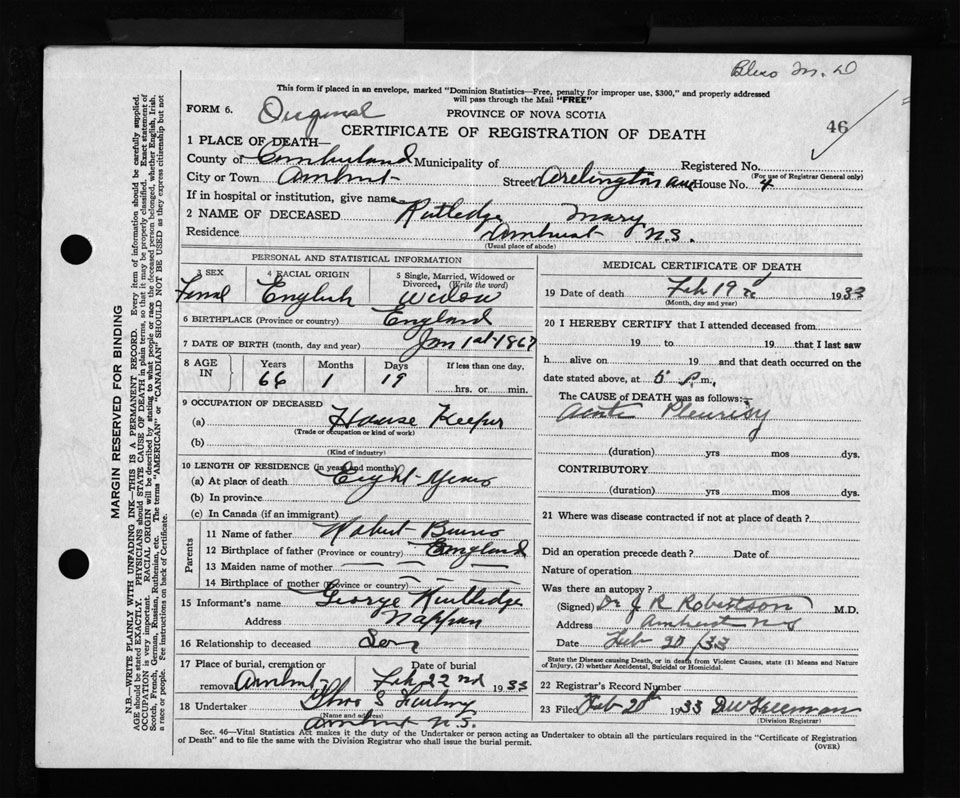 M. D
This form if placed in an envelope, marked "Dominion Statistics—Free, penalty for improper use, $300," and properly addressed
will pass through the Mail "FREE"
FORM 6. Original PROVINCE OF NOVA SCOTIA
CERTIFICATE OF REGISTRATION OF DEATH 46
1 PLACE OF DEATH—
County of Cumberland Municipality of Registered No.
(For use of Registrar General only)
City or Town Amherst Street Arelington ave House No. 4
If in hospital or institution, give name
2 NAME OF DECEASED Rutledge Mary
Residence Amherst N.S.
(Usual place of abode)
PERSONAL AND STATISTICAL INFORMATION
3 SEX 4 RACIAL ORIGIN 5 Single, Married, Widowed or
Divorced, (Write the word)
Femal English Widow
6 BIRTHPLACE (Province or country) England
7 DATE OF BIRTH (month, day and year) Jan 1st 1867
8 AGE IN Years Months Days If less than one day,
66 1 19 hrs. or min.
9 OCCUPATION OF DECEASED
(a) House Keeper
(Trade or occupation or kind of work)
(b)
(Kind of industry)
10 LENGTH OF RESIDENCE (in years and months)
(a) At place of death Eight Years
(b) In province
(c) In Canada (if an immigrant)
Parents
11 Name of father Robert Burns
12 Birthplace of father (Province or country) England
13 Maiden name of mother — — — —
14 Birthplace of mother (Province or country) — — — —
15 Informant's name George Rutledge
Address Nappan
16 Relationship to deceased Son
17 Place of burial, cremation or Date of burial
removal Amherst Feb 22nd 1933
18 Undertaker
(Name and address)
Amherst N.S.
MEDICAL CERTIFICATE OF DEATH
19 Date of death Feb 19 1933
(Month, day and year)
20 I HEREBY CERTIFY that I attended deceased from
19 to 19 that I last saw
h alive on 19 and that death occurred on the
date stated above, at 6 P. m.,
The CAUSE of DEATH was as follows:—
Acute Pleurisy
(duration) yrs mos dys.
CONTRIBUTORY
(duration) yrs mos dys.
21 Where was disease contracted if not at place of death?
Did an operation precede death? Date of
Nature of operation
Was there an autopsy?
(Signed) Dr J R Robertson M.D.
Address Amherst NS
Date Feb 20/33
State the Disease causing Death, or in death from Violent Causes, state (1) Means and Nature
of Injury, (2) whether Accidental, Suicidal or Homicidal.
22 Registrar's Record Number
23 Filed Feb 20th 1933 DW Freeman
(Division Registrar)
Sec. 46—Vital Statistics Act makes it the duty of the Undertaker or person acting as Undertaker to obtain all the particulars required in the "Certificate of Registration
of Death" and to file the same with the Division Registrar who shall issue the burial permit. (OVER)
MARGIN RESERVED FOR BINDING
N.B.—WRITE PLAINLY WITH UNFADING INK—THIS IS A PERMANENT RECORD. Every item of information should be carefully supplied.
AGE should be stated EXACTLY. PHYSICIANS should STATE CAUSE OF DEATH in plain terms, so that it may be properly classified. Exact statement of
OCCUPATION is very important. RACIAL ORIGIN will be described by stating to what people or race the deceased person belonged, whether English, Irish,
Scotch, French, German, Russian, Ruthenian, etc. The terms "AMERICAN" or "CANADIAN" SHOULD NOT BE USED as they express citizenship but not
a race or people. See instructions on back of Certificate.